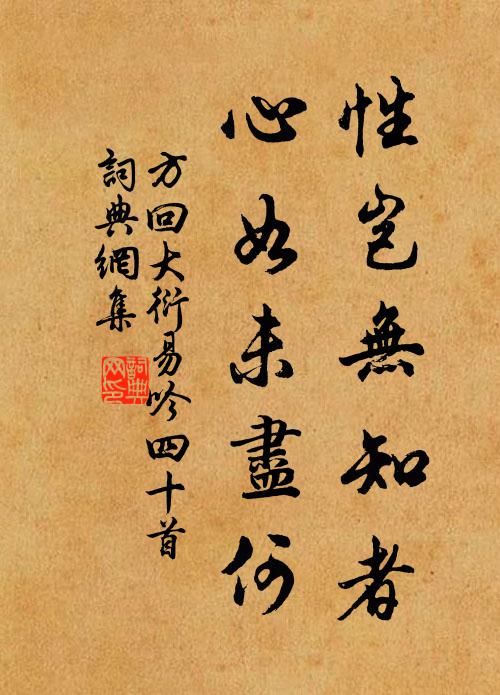 性岂無知者
心如未盡何
方回大衍易吟四十首
詞典網集
詞典
网印